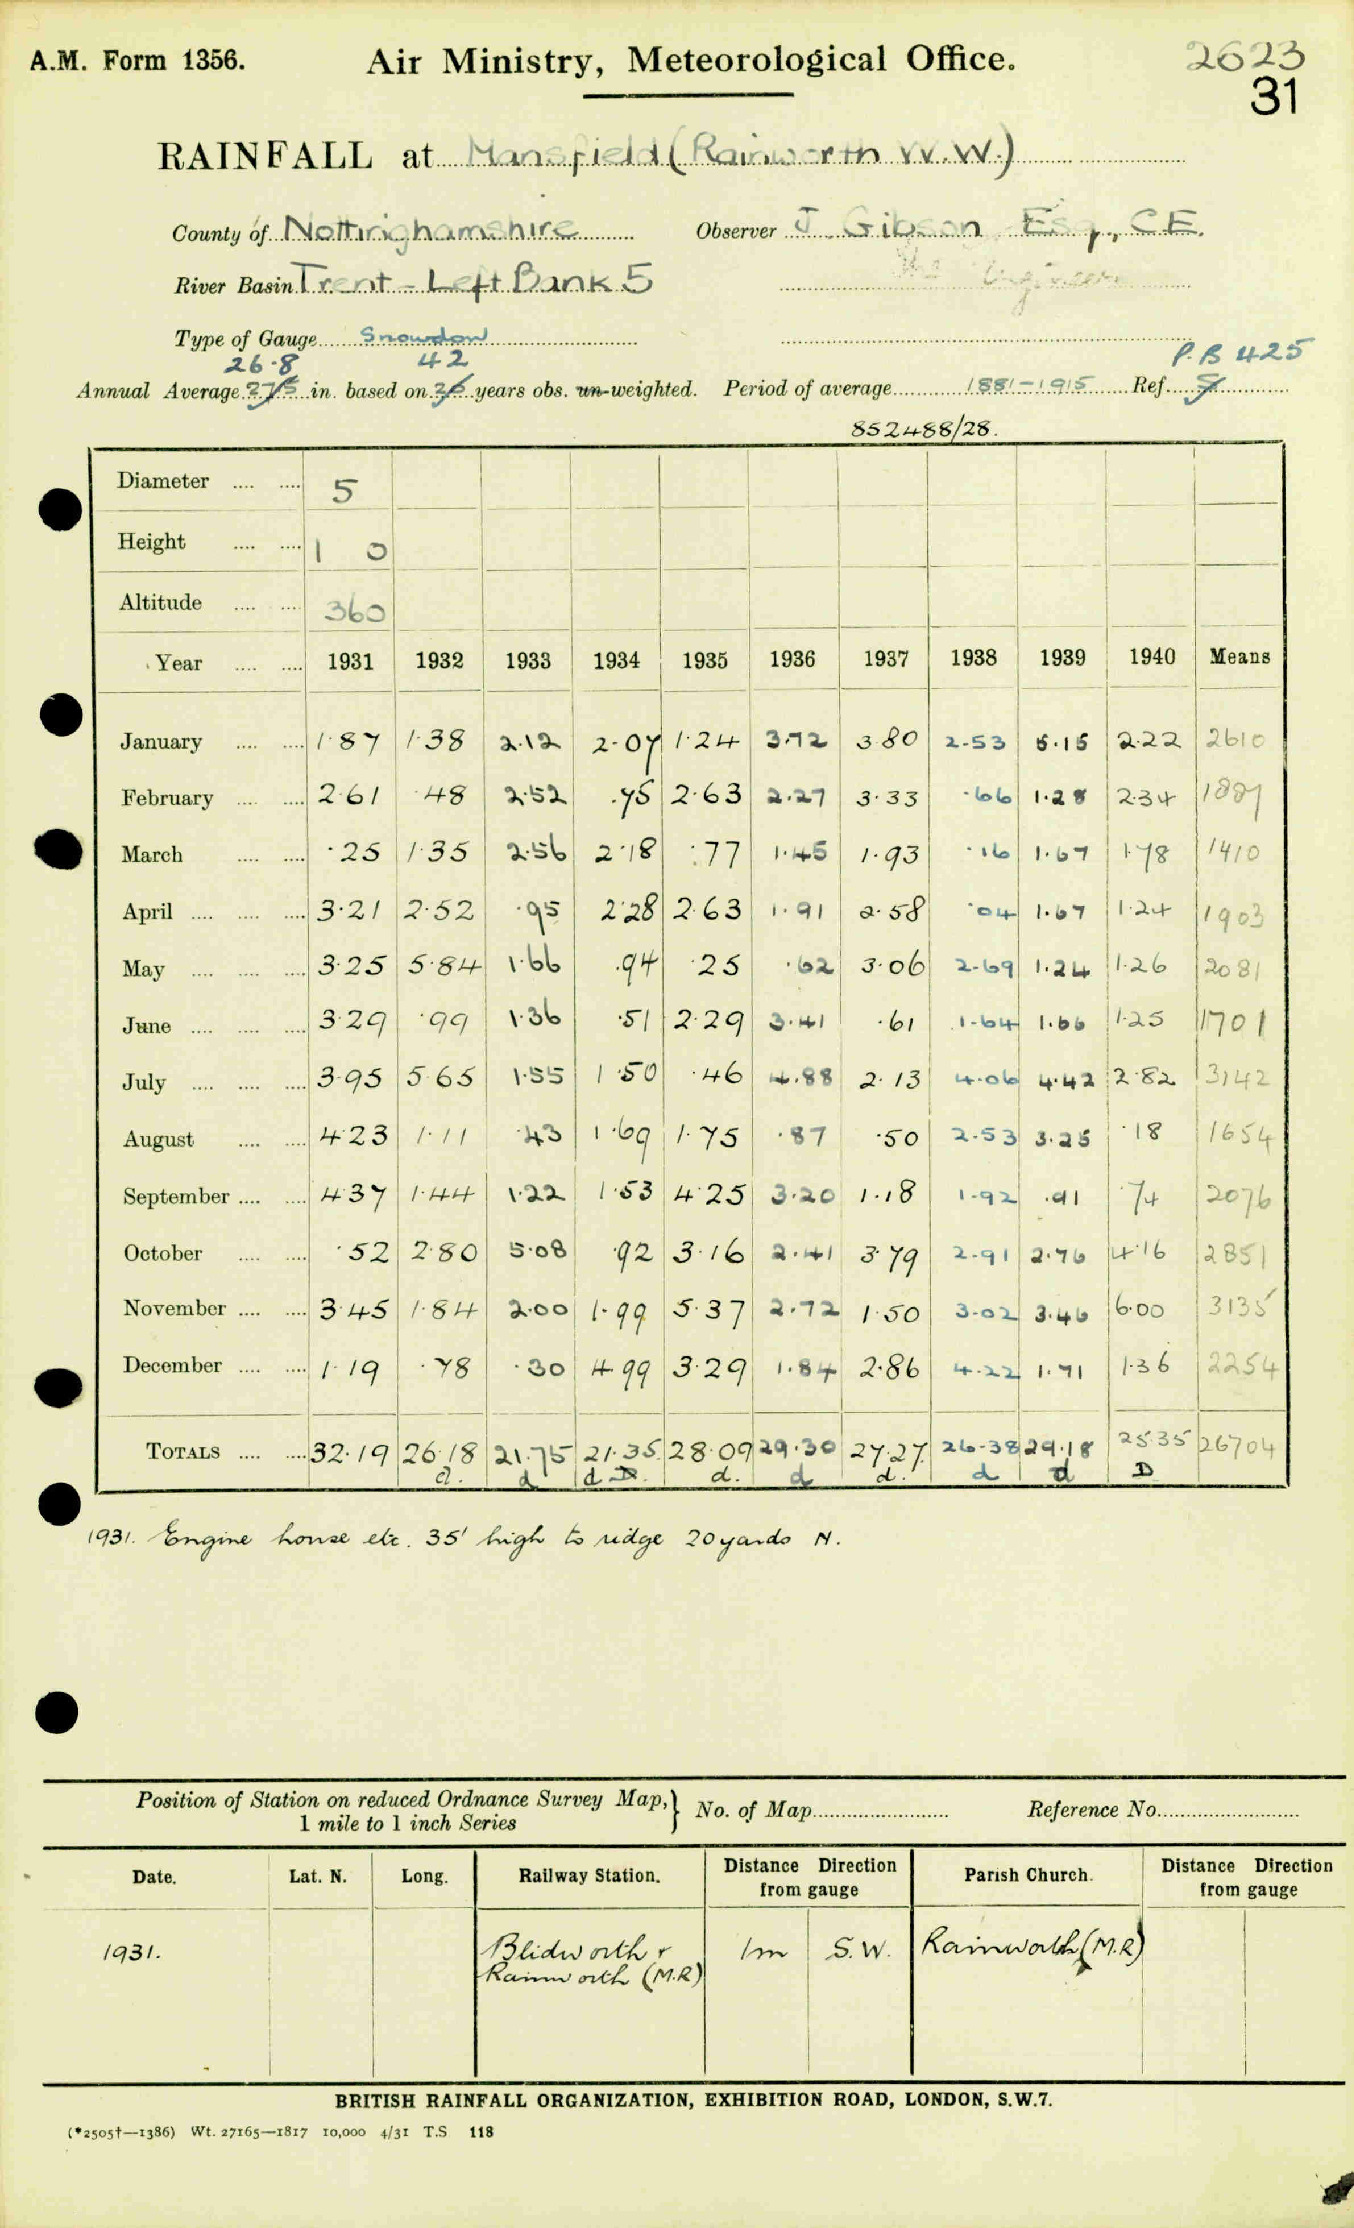 A.M. Form 1356. Air Ministry, Meteorological Office. 2623
31
RAINFALL at Mansfield (Rainworth W.W.)
County of Nottinghamshire Observer J. Gibson Esq., C.E.
River Basin Trent - Left Bank 5 The Engineer
Type of Gauge Snowdon
26.8 42 P.B 425
Annual Average 27.5 in. based on 36 years obs. un-weighted. Period of average 1881-1915 Ref.
852488/28.
Diameter .... .... 5
Height .... .... 1 0
Altitude .... .... 360
Year .... .... 1931 1932 1933 1934 1935 1936 1937 1938 1939 1940 Means
January .... .... 1.87 1.38 2.12 2.07 1.24 3.72 3.80 2.53 5.15 2.22 2610
February .... .... 2.61 .48 2.52 .75 2.63 2.27 3.33 .66 1.28 2.34 1887
March .... .... .25 1.35 2.56 2.18 .77 1.45 1.93 .16 1.67 1.78 1410
April .... .... .... 3.21 2.52 .95 2.28 2.63 1.91 2.58 .04 1.67 1.24 1903
May .... .... .... 3.25 5.84 1.66 .94 .25 .62 3.06 2.69 1.24 1.26 2081
June .... .... .... 3.29 .99 1.36 .51 2.29 3.41 .61 1.64 1.66 1.25 1701
July .... .... .... 3.95 5.65 1.55 1.50 .46 4.88 2.13 4.06 4.42 2.82 3142
August .... .... 4.23 1.11 .43 1.69 1.75 .87 .50 2.53 3.25 .18 1654
September .... .... 4.37 1.44 1.22 1.53 4.25 3.20 1.18 1.92 .91 .74 2076
October .... .... .52 2.80 5.08 .92 3.16 2.41 3.79 2.91 2.76 4.16 2851
November .... .... 3.45 1.84 2.00 1.99 5.37 2.72 1.50 3.02 3.46 6.00 3135
December .... .... 1.19 .78 .30 4.99 3.29 1.84 2.86 4.22 1.71 1.36 2254
TOTALS .... .... 32.19 26.18 21.75 21.35 28.09 29.30 27.27 26.38 29.18 25.35 26704
d. d d D. d. d d. d d D
1931. Engine house etc. 35' high to ridge 20 yards N.
Position of Station on reduced Ordnance Survey Map,} No. of Map Reference No.
1 mile to 1 inch Series
Date. Lat. N. Long. Railway Station. Distance Direction from gauge Parish Church. Distance Direction from gauge
1931. Blidworth & 1m S.W. Rainworth (M.R)
Rainworth (M.R)
BRITISH RAINFALL ORGANIZATION, EXHIBITION ROAD, LONDON, S.W.7.
(*2505†—1386) Wt. 27165—1817 10,000 4/31 T.S 118